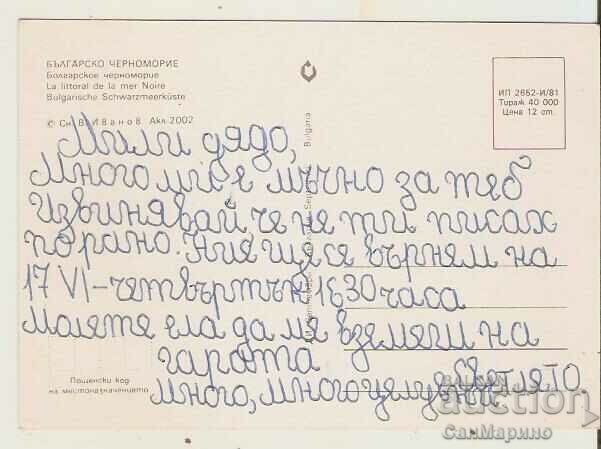 БЪЛГАРСКО ЧЕРНОМОРИЕ
Болгарское черноморие
La littoral de la mer Noire
Bulgarische Schwarzmeerküste
© Сн. В. Иванов Акл-2002
Bulgaria
ИП 2652-И/81
Тираж 40 000
Цена 12 ст.
Мили дядо,
Много ми е мъчно за теб
Извинявай че не ти писах
порано. Ние ще се върнем на
17 VI - четвъртък 16 30 часа
Моляте ела да ме вземеш на
гарата
много, много целувки
Пощенски код
на местоназначението
auction
СанМарино